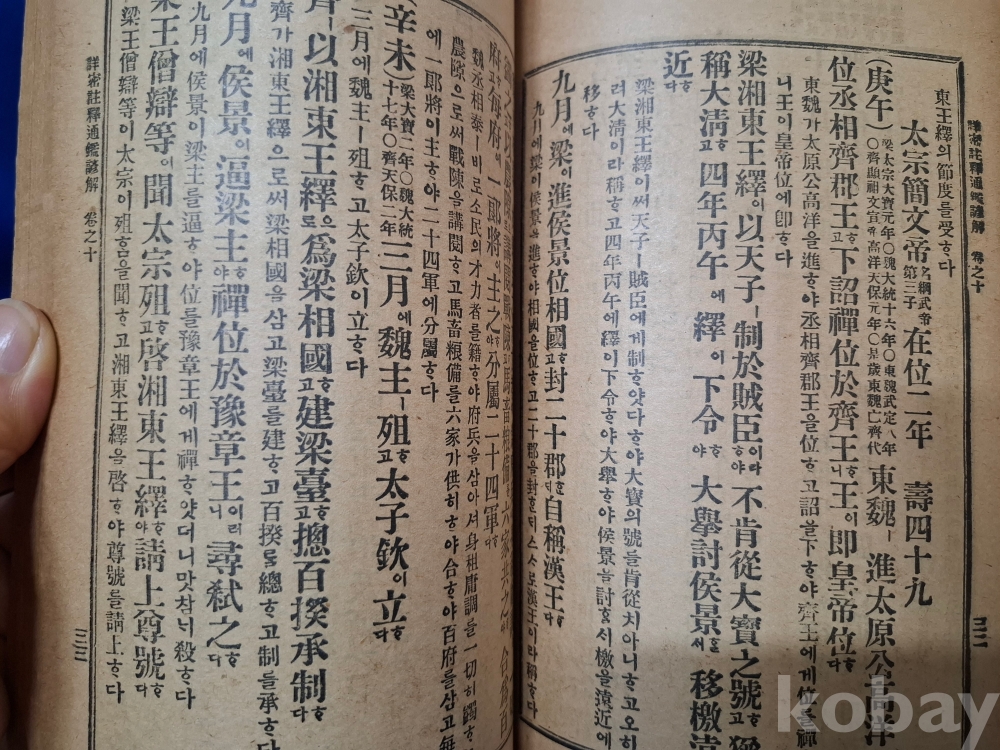 詳密註釋通鑑諺解 卷之十
三二
東王繹의 節度를 受ᄒᆞ다
太宗簡文帝 名綱武帝第三子 在位二年 壽四十九
(庚午) 梁太宗大寶元年○魏大統十六年○東魏武定八年○齊顯祖文宣帝高洋天保元年○是歲東魏亡齊代 東魏ㅣ 進太原公高洋
位丞相齊郡王ᄒᆞ고 下詔禪位於齊王ᄒᆞ니 王이 即皇帝位ᄒᆞ다
東魏가 太原公高洋을 進ᄒᆞ야 丞相齊郡王을 位ᄒᆞ고 詔를 下ᄒᆞ야 齊王에게 位를 禪ᄒᆞ
니 王이 皇帝位에 即ᄒᆞ다
梁湘東王繹이 以天子ㅣ 制於賊臣이라ᄒᆞ야 不肯從大寶之號ᄒᆞ고
稱大淸 四年丙午에 繹이 下令ᄒᆞ야 大擧討侯景ᄒᆞᆯᄉᆡ 移檄
近ᄒᆞ다
梁湘東王繹이 써 天子ㅣ 賊臣에게 制ᄒᆞ얏다ᄒᆞ야 大寶의 號를 肯從치 아니ᄒᆞ고 오히
려 大淸이라 稱ᄒᆞ고 四年丙午에 繹이 下令ᄒᆞ야 大擧ᄒᆞ야 侯景을 討ᄒᆞᆯᄉᆡ 檄을 遠近에
移ᄒᆞ다
九月에 梁이 進侯景位相國ᄒᆞ고 封二十郡ᄒᆞᆫᄃᆡ 自稱漢王ᄒᆞ다
九月에 梁이 侯景을 進ᄒᆞ야 相國을 位ᄒᆞ고 二十郡을 封ᄒᆞᆫᄃᆡ 스스로 漢王이라 稱ᄒᆞ다
府ᄒᆞ고 每府에 一郎將이 主之ᄒᆞ야 分屬二十四軍ᄒᆞ다
魏丞相泰ㅣ 비로소 民의 才力者를 籍ᄒᆞ야 府兵을 삼아셔 身租庸調를 一切히 蠲ᄒᆞ고
農隙으로써 戰陳을 講閱ᄒᆞ고 馬畜粮備를 六家가 供히ᄒᆞ야 合ᄒᆞ야 百府를 삼고 每
에 一郎將이 主ᄒᆞ야 二十四軍에 分屬ᄒᆞ다
(辛未) 梁大寶二年○魏大統十七年○齊天保二年 三月에 魏主ㅣ 殂ᄒᆞ고 太子欽이 立ᄒᆞ다
三月에 魏主ㅣ 殂ᄒᆞ고 太子欽이 立ᄒᆞ다
齊ㅣ 以湘東王繹으로 爲梁相國ᄒᆞ고 建梁臺ᄒᆞ고 摠百揆承制ᄒᆞ다
齊가 湘東王繹으로써 梁相國을 삼고 梁臺를 建ᄒᆞ고 百揆를 總ᄒᆞ고 制를 承ᄒᆞ다
九月에 侯景이 逼梁主ᄒᆞ야 禪位於豫章王이러니 尋弑之ᄒᆞ다
九月에 侯景이 梁主를 逼ᄒᆞ야 位를 豫章王에게 禪ᄒᆞ얏더니 맛참ᄂᆡ 殺ᄒᆞ다
王僧辯等이 聞太宗殂ᄒᆞ고 啓湘東王繹ᄒᆞ야 請上尊號ᄒᆞ다
梁王僧辯等이 太宗이 殂ᄒᆞᆷ을 聞ᄒᆞ고 湘東王繹을 啓ᄒᆞ야 尊號를 請上ᄒᆞ다
詳密註釋通鑑諺解 卷之十
三三
kobay